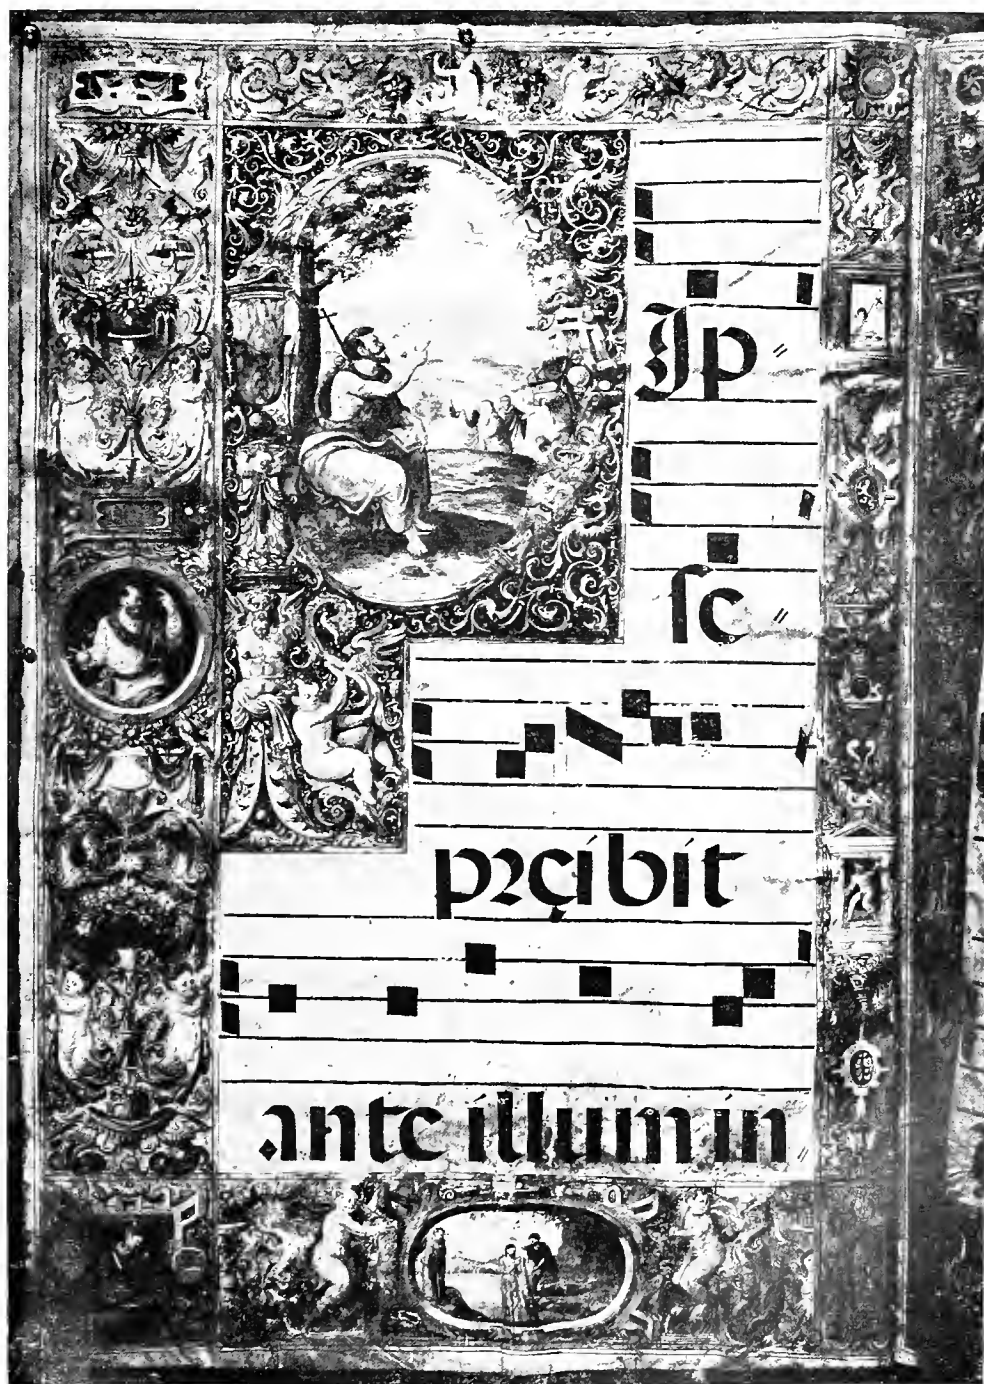 Ip //
sc //
pręibit
ante illum in //